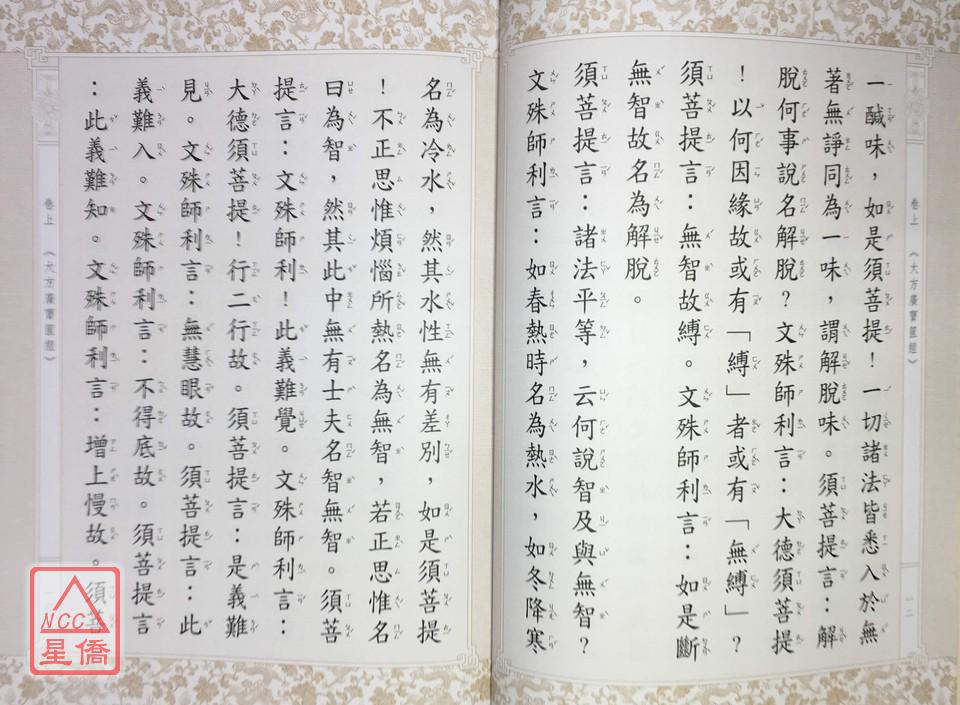 一醎味，如是須菩提！一切諸法皆悉入於無
著無諍同為一味，謂解脫味。須菩提言：解
脫何事說名解脫？文殊師利言：大德須菩提
！以何因緣故或有「縛」者或有「無縛」？
須菩提言：無智故縛。文殊師利言：如是斷
無智故名為解脫。
須菩提言：諸法平等，云何說智及與無智？
文殊師利言：如春熱時名為熱水，如冬降寒
卷上 《大方廣寶篋經》
一二
名為冷水，然其水性無有差別，如是須菩提
！不正思惟煩惱所熱名為無智，若正思惟名
曰為智，然其此中無有士夫名智無智。須菩
提言：文殊師利！此義難覺。文殊師利言：
大德須菩提！行二行故。須菩提言：是義難
見。文殊師利言：無慧眼故。須菩提言：此
義難入。文殊師利言：不得底故。須菩提言
：此義難知。文殊師利言：增上慢故。須菩
卷上 《大方廣寶篋經》
NCC
星僑